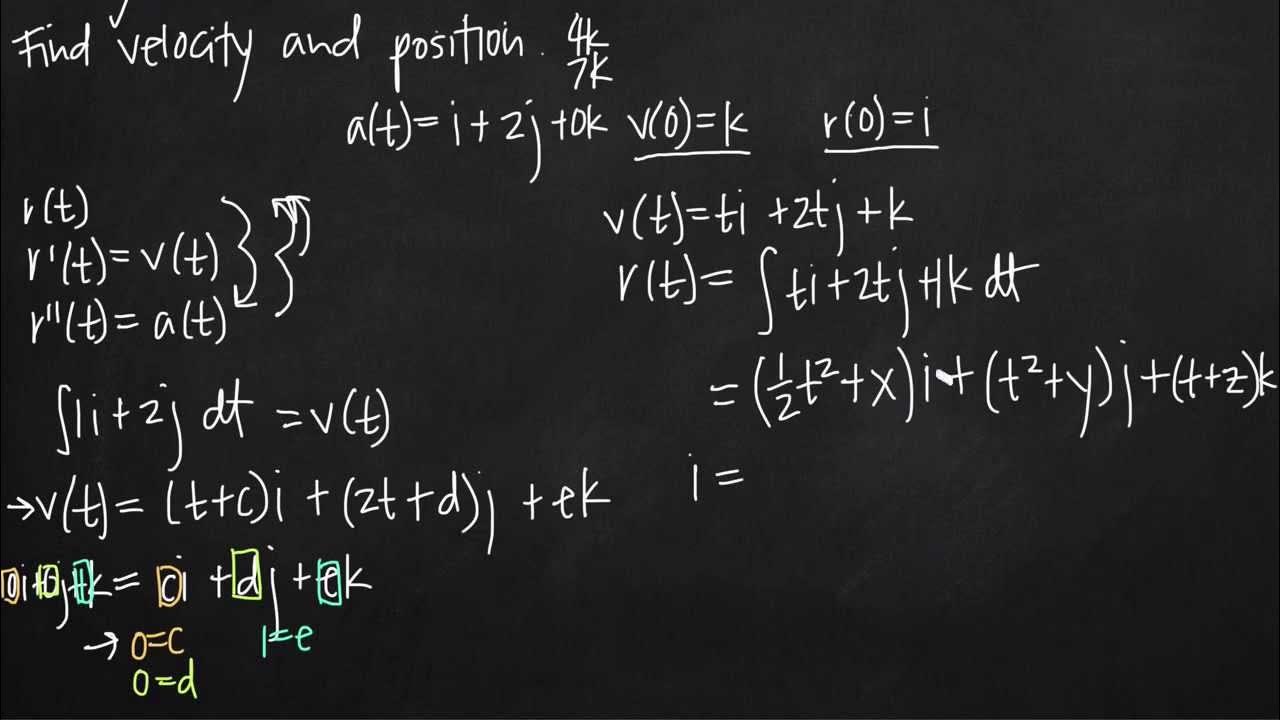 Find velocity and position. 4k
7k
a(t)= i + 2j +0k v(0)=k r(0)=i
r(t)
r'(t)= v(t)
r"(t)= a(t)
∫1i+2j dt =v(t)
→v(t)= (t+c)i + (2t+d)j +ek
0i+0j+1k= ci +dj+ek
→ 0=c 1=e
0=d
v(t)=ti +2tj+k
r(t)= ∫ti+2tj+1k dt
=(1/2t²+x)i+(t²+y)j+(t+z)k
i =